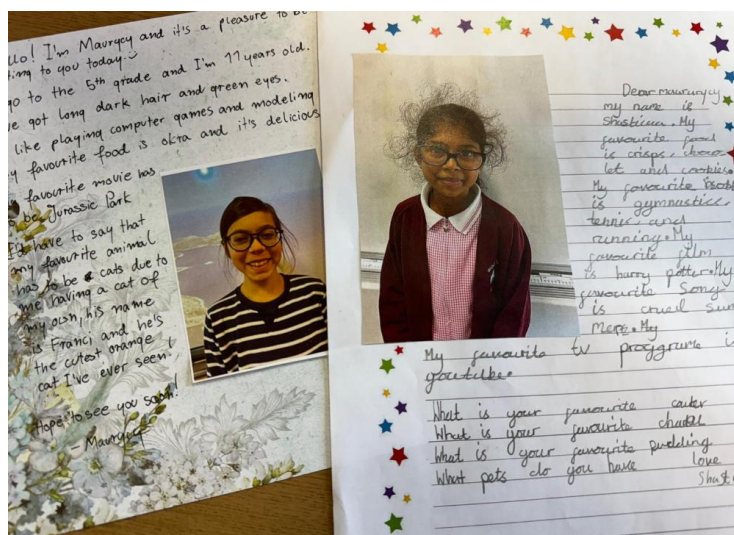 llo! I'm Maurycy and it's a pleasure to be
ting to you today
go to the 5th grade and I'm 11 years old.
e got long dark hair and green eyes.
like playing computer games and modeling
y favourite food is okra and it's delicious
favourite movie has
be Jurassic Park
I'd have to say that
my favourite animal
has to be cats due to
me having a cat of
my own, his name
is Franci and he's
the cutest orange
cat I've ever seen!
Hope to see you soon!
- Maurycy
Dear maurycy
my name is
My
favourite food
is crisps, choco
let and cookies.
My favourite
is gymnastics,
tennis, and
running. My
favourite film
is harry potter. My
favourite song
is cruel sum
mer. My
My favourite tv programme is
youtube.
What is your favourite
What is your favourite
What is your favourite pudding
What pets do you have love